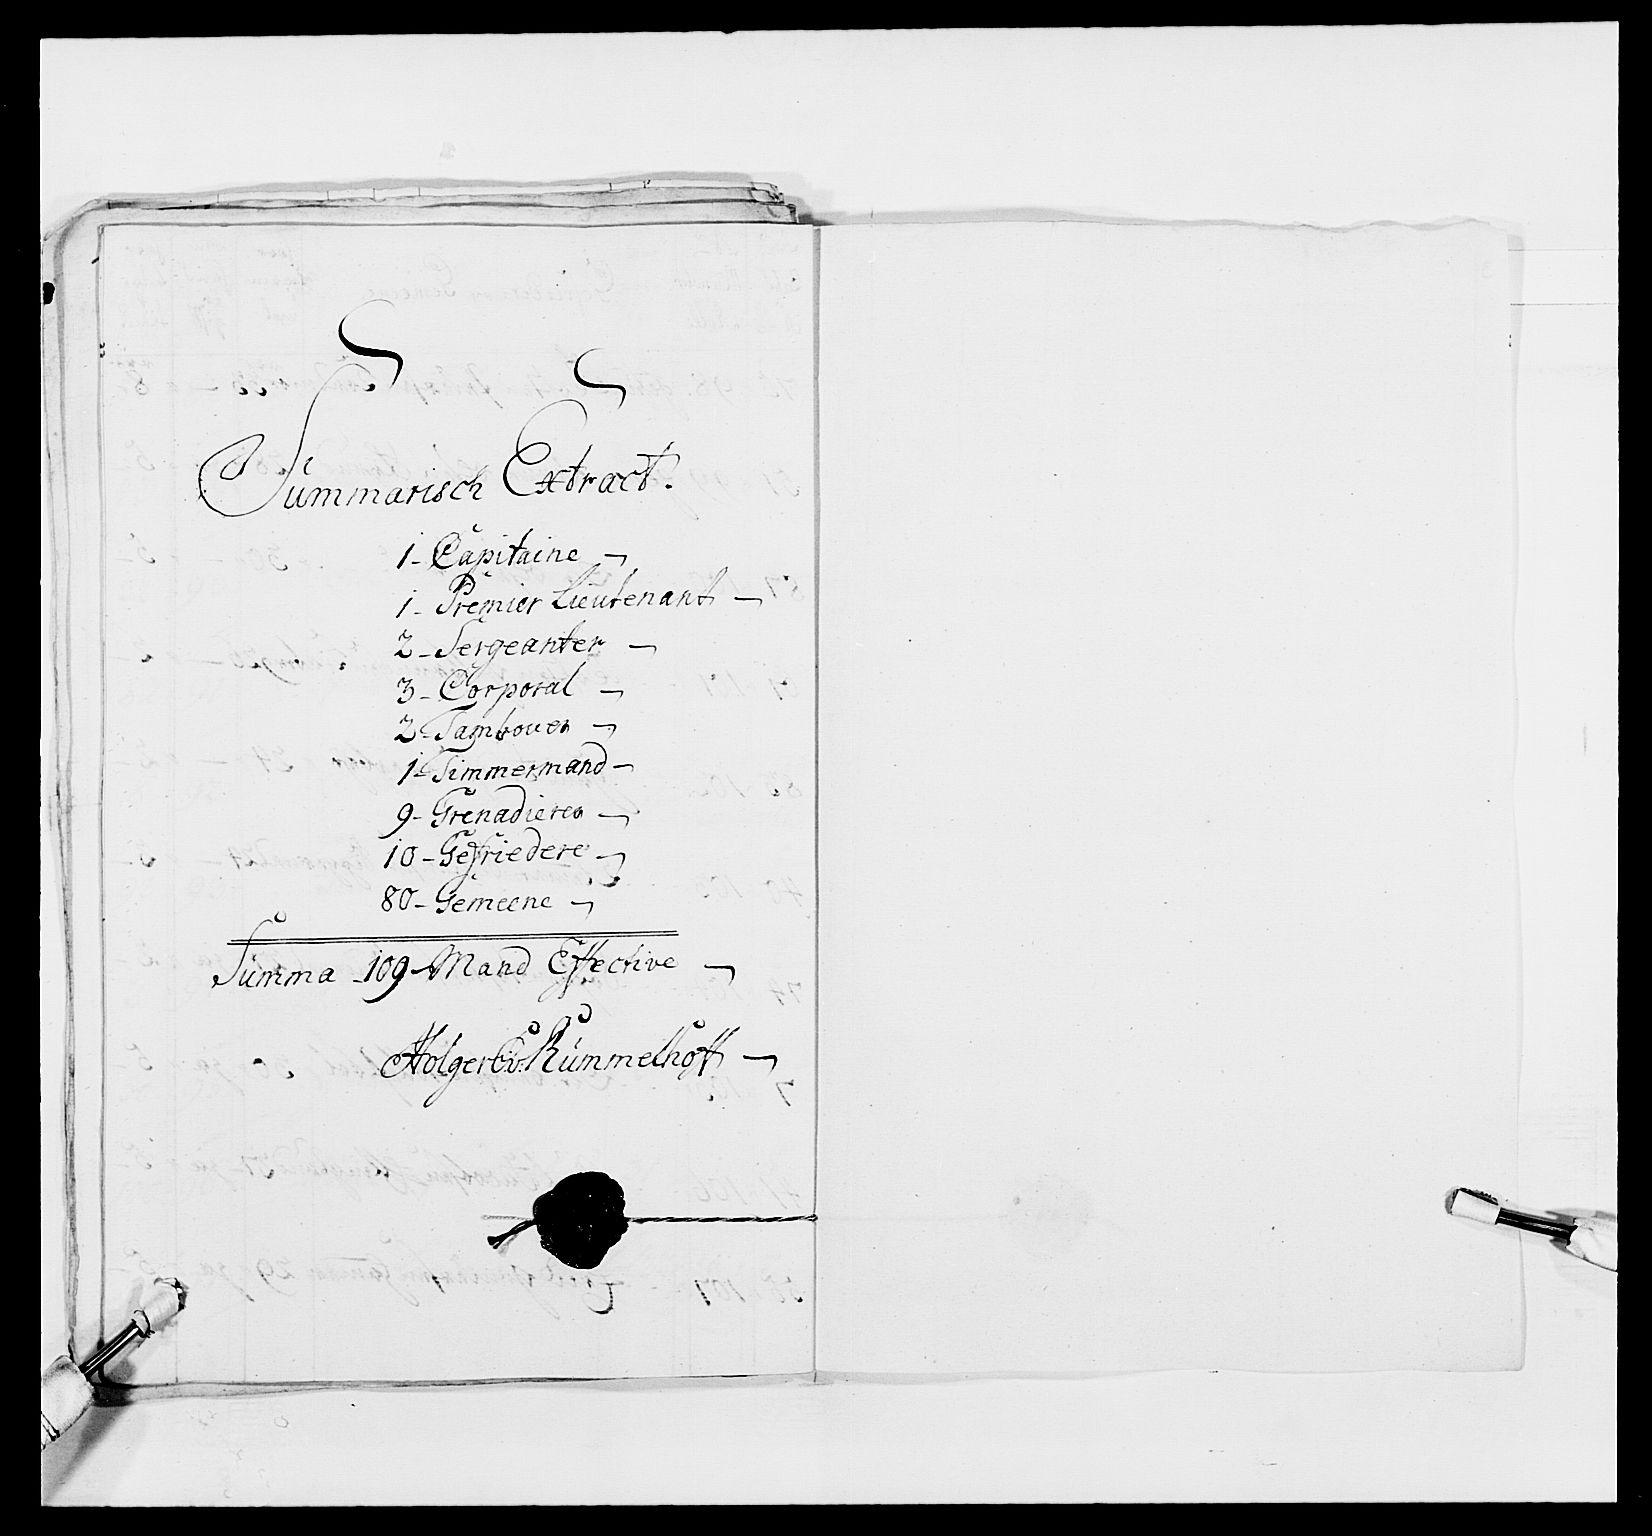 Summarisch Extract.
1 - Capitaine
1 - Premier Lieutenant
2 - Sergeanter
3 - Corporal
2 - Tambouer
1 - Timmermand
9 - Grenadierer
10 - Gefriedere
80 - Gemeene
Summa - 109 - Mand Effective
Holger C v: Kümmelhoff